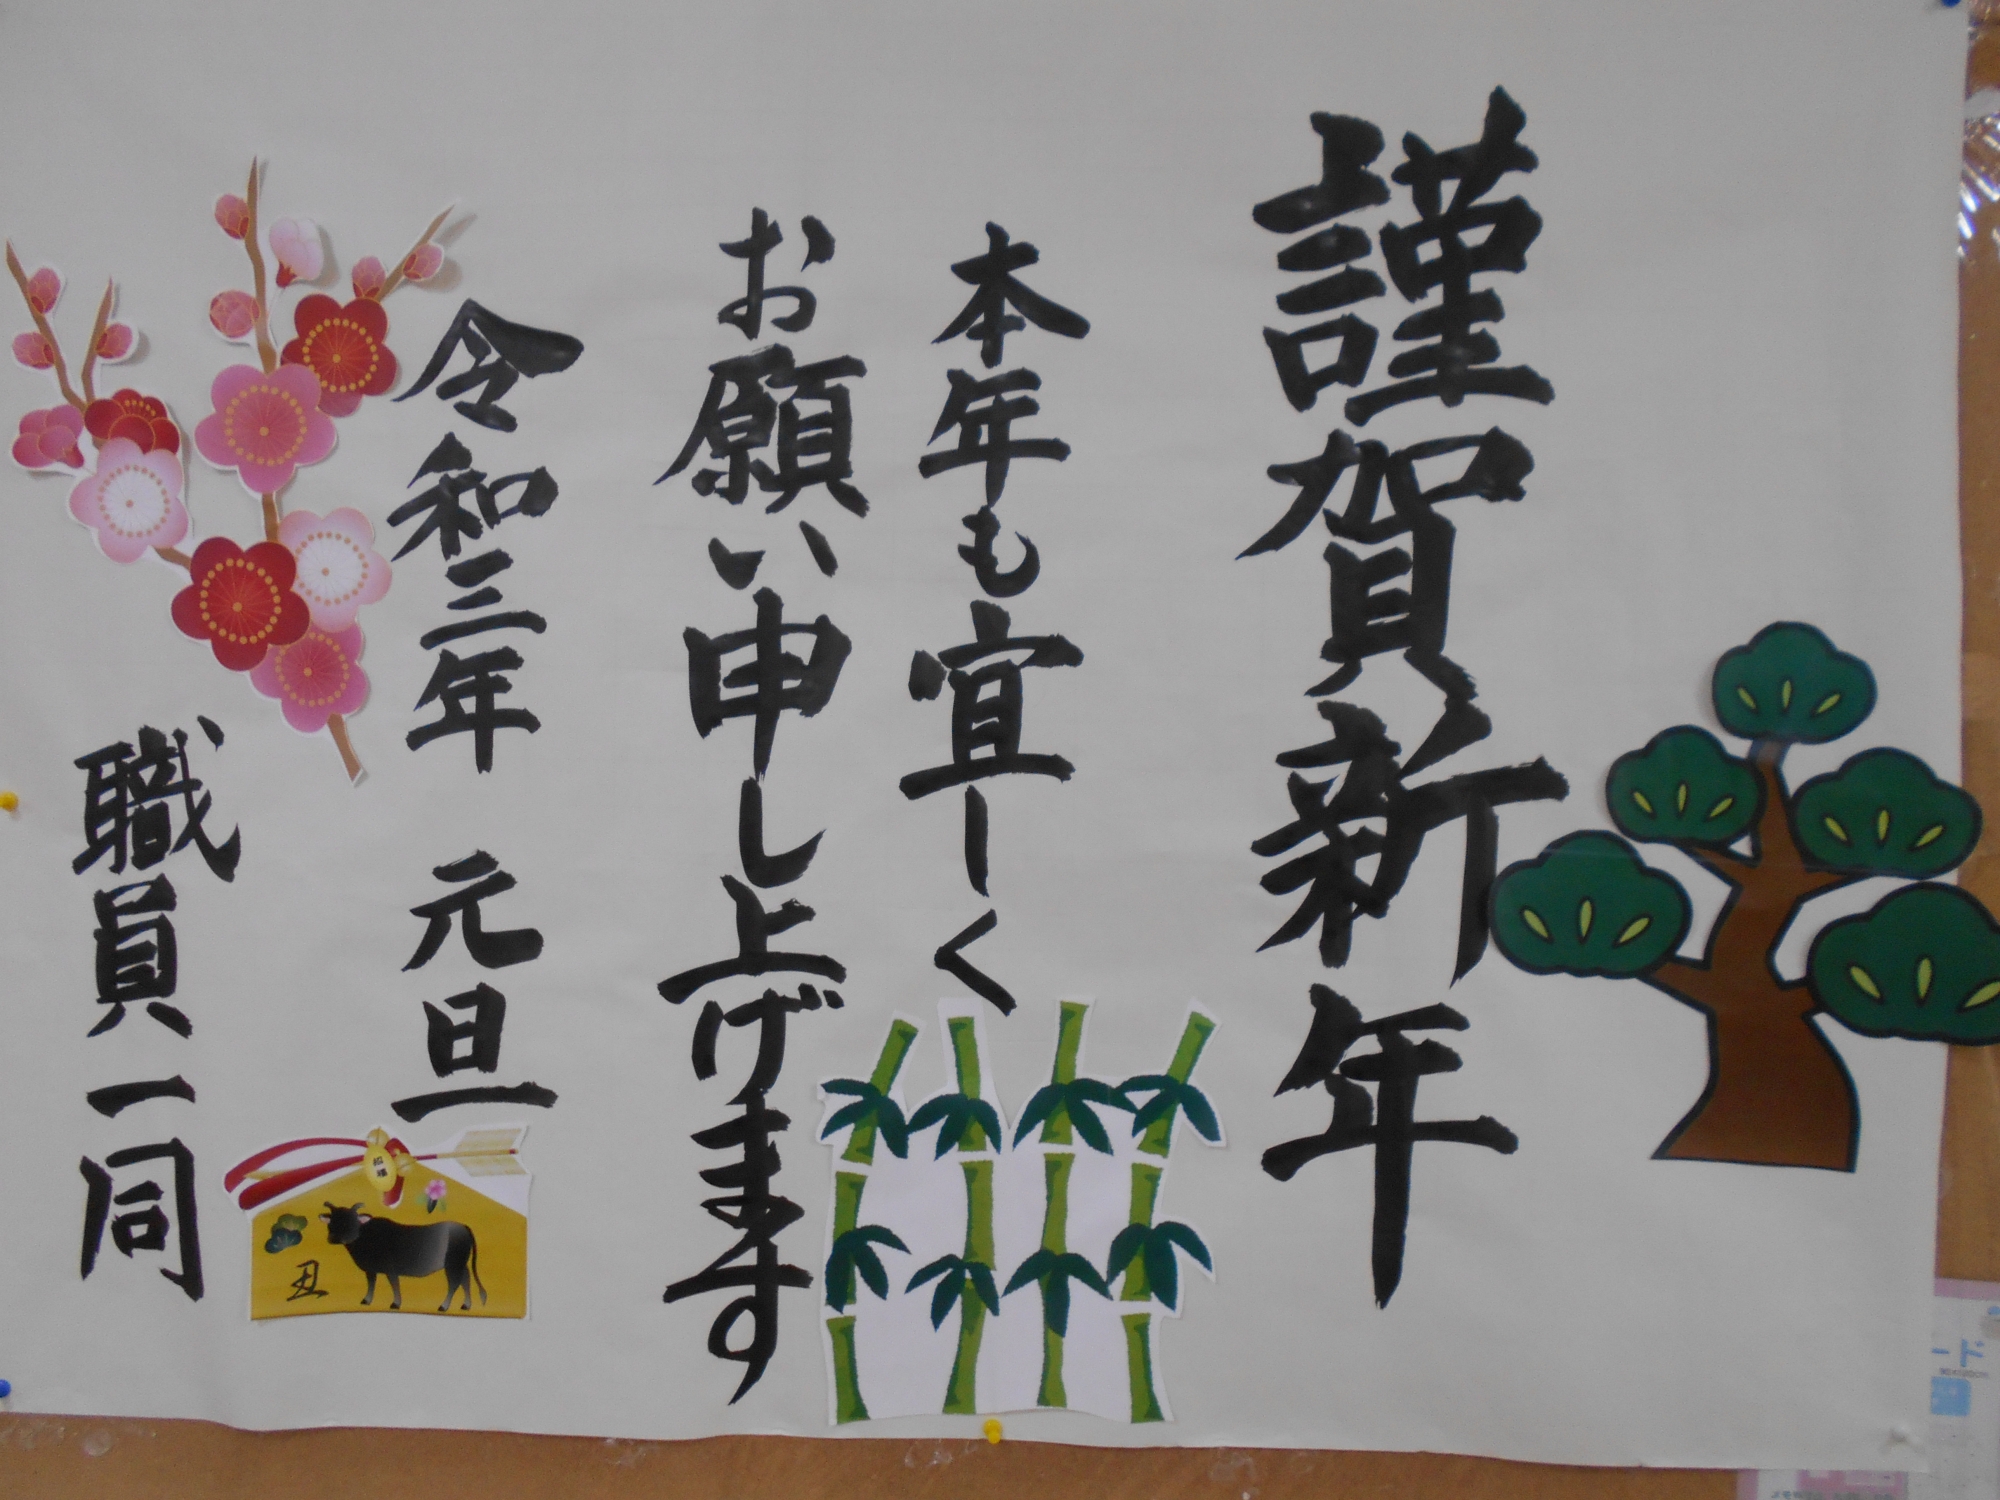 謹賀新年
本年も宜しく
お願い申し上げます
令和三年 元旦
職員一同
丑
ード